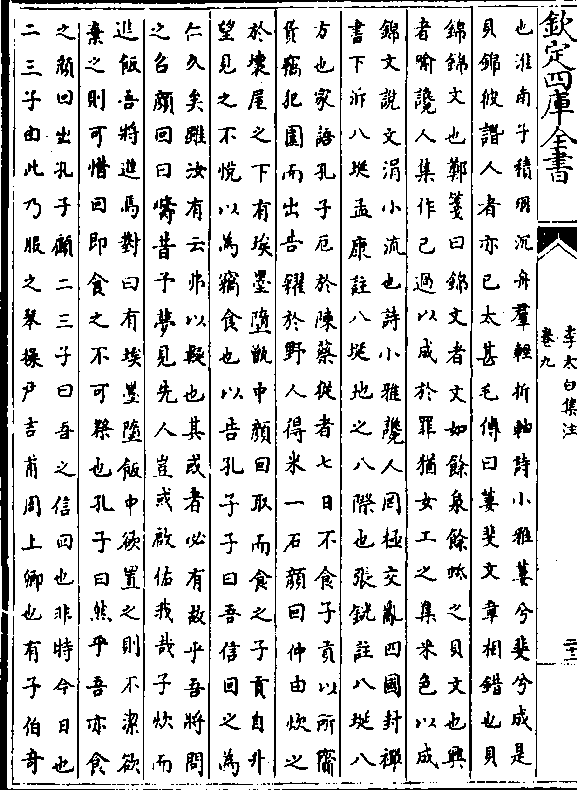 欽定四庫全書
李太白集注
卷九
二十二
也淮南子積羽沉舟羣輕折軸詩小雅萋兮斐兮成是
貝錦彼譖人者亦已太甚毛傳曰萋斐文章相錯也貝
錦錦文也鄭箋曰錦文者文如餘泉餘蚳之貝文也興
者喻讒人集作己過以成於罪猶女工之集采色以成
錦文說文涓小流也詩小雅讒人罔極交亂四國封禪
書下泝八埏孟康註八埏地之八際也張銑註八埏八
方也家語孔子厄於陳蔡從者七日不食子貢以所齎
貨竊犯圍而出告糴於野人得米一石顔回仲由炊之
於壞屋之下有埃墨墮甑中顔回取而食之子貢自外
望見之不悅以為竊食也以告孔子子曰吾信回之為
仁久矣雖汝有云弗以疑也其或者必有故乎吾將問
之召顔回曰疇昔予夢見先人豈或啟佑我哉子炊而
進飯吾將進焉對曰有埃墨墮飯中欲置之則不潔欲
棄之則可惜回即食之不可祭也孔子曰然乎吾亦食
之顔回出孔子顧二三子曰吾之信回也非時今日也
二三子由此乃服之琴操尹吉甫周上卿也有子伯奇